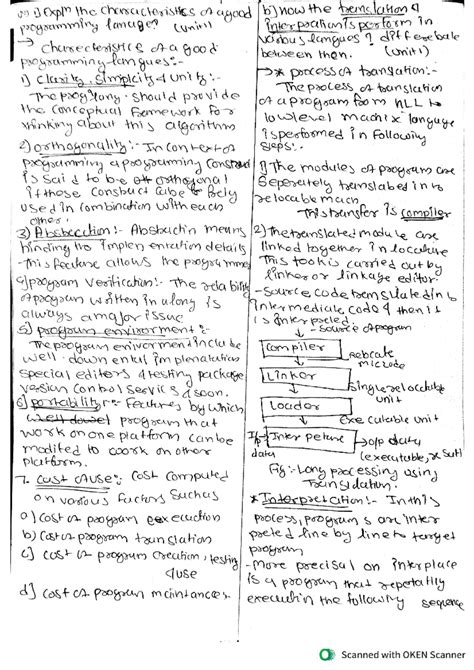 1) Expln the characteristics of a good
programming languge? (unit1)
→ Charecteristics of a good
programming langues:-
1) clarity, simplicity & unity:-
The prog lang. should provide
the conceptual framework for
thinking about this algorithm
2) orthogonality:- In context of
programming a programming construct
is said to be orthogonal
if those construct cube freely
used in combination with each
other.
3) Absbection:- Absbachion means
hinding the implementation details
- This feature allows the programmer
4) program verification:- The reliability
of program written in a long is
always a major issue
5) program envirorment:-
The program envirorment include
well-down ental implenalation
special editors & testing package
version conbol services & soon.
6) portability:- Features by which
program that
work on one platform canbe
modited to work on other
platform.
7. cust cause:- cost computed
on various factors suchas
a) cost of program execuction
b) cast of program translation
c) cost of program creation, testing
& use
d) cost of program maintances.
b) how the trenclation &
interpration is perform in
various langues? differebale
between then. (unit1)
→ * process of translation:-
The process of translation
of a program from HLL to
low level machix languge
is performed in following
steps:-
1) The modules of program are
seperately translabed into
relocable mach
This transfer is compiler
2) The translated module are
linked together in locature
This took is carried out by
linker or linkage editor.
- Source code translated in to
Intermediale code & then it
is interpreted.
- source of program
compiler
Linker
single relocatable
unit
Loader
exe cutable unit
I/p
data
Inter peture
o/p data
Fig:- Long processing using
translation.
* Interpretation:- In this
process, program s are inter
preted line by line to target
program
- More precisal on interplace
is a program that repertatily
execuhin the following sequence
Scanned with OKEN Scanner